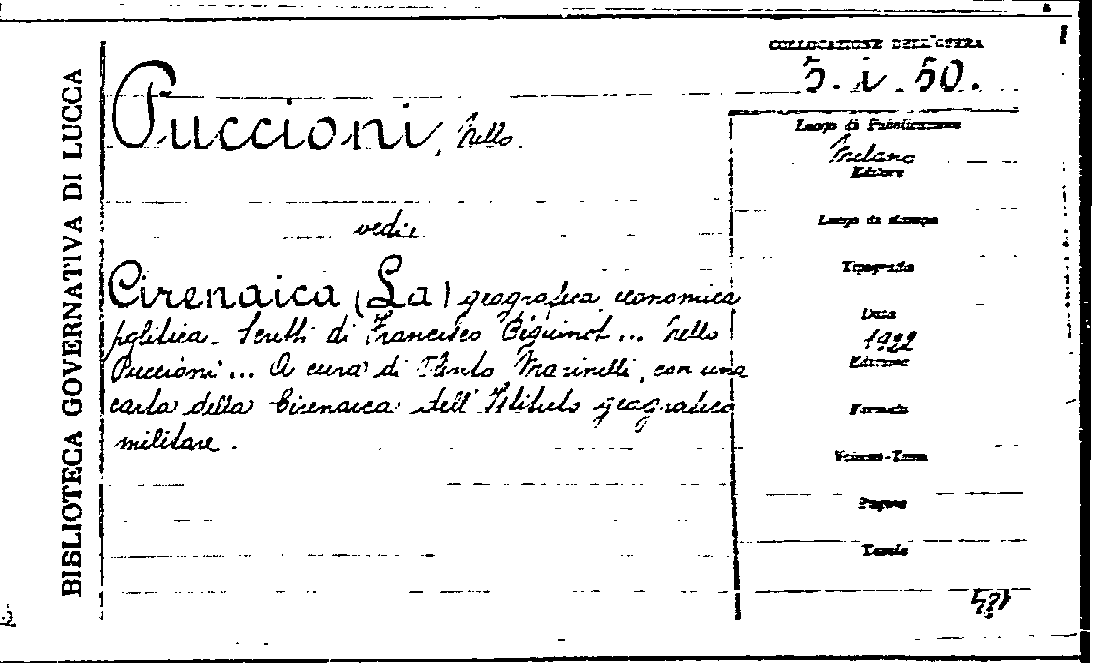 BIBLIOTECA GOVERNATIVA DI LUCCA
COLLOCAZIONE DELL'OPERA
5. i. 50.
Puccioni, Nello.
Luogo di Pubblicazione
Milano
Editore
Luogo di stampa
vedi:
Tipografia
Cirenaica (La) geografica economica
Data
politica. Scritti di Francesco Beguinot... Nello
1922
Puccioni... A cura di Olinto Marinelli, con una
Edizione
carta della Cirenaica dell'Istituto geografico
Formato
militare.
Volume-Tomo
Pagine
Tavole